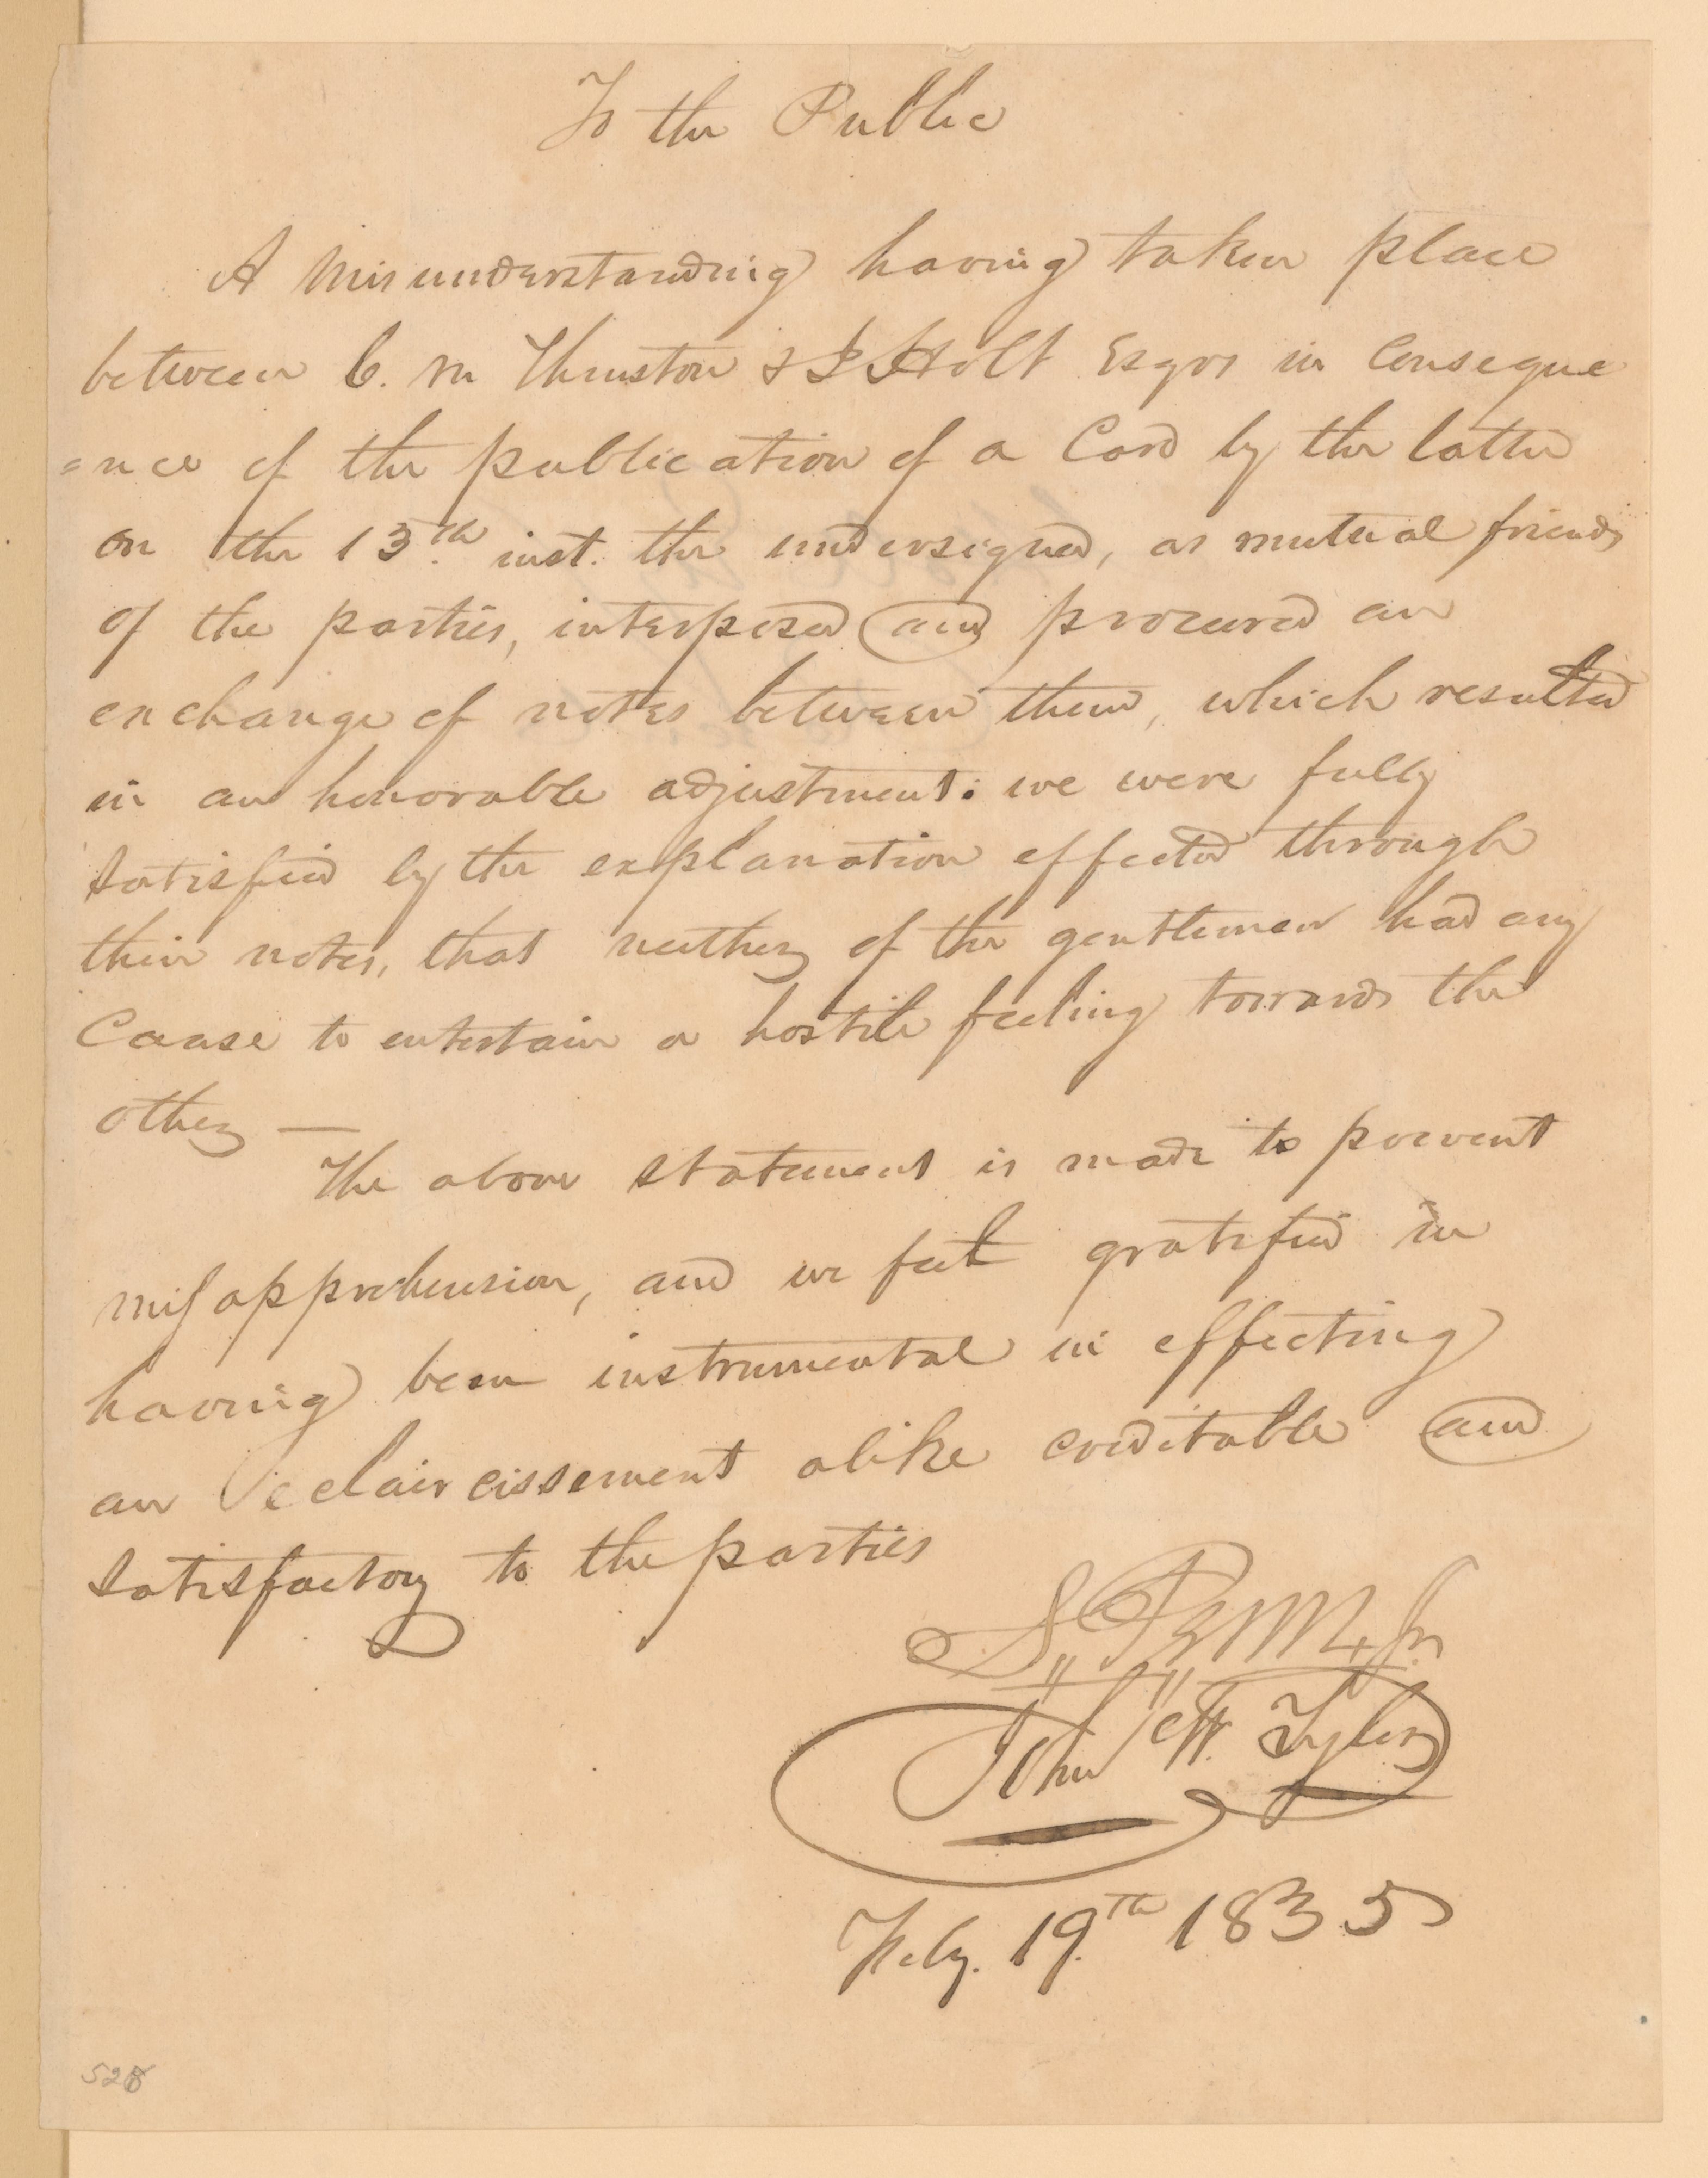 To the Public
A Misunderstanding having taken place
between C. M Thruston & J Holt Esqrs in Conseque
=nce of the publication of a Card by the latter
on the 13th. inst. the undersigned, as mutual friends
of the parties, interposed and procured an
exchange of notes between them, which resulted
in an honorable adjustment: we were fully
satisfied by the explanation effected through
their notes, that neither of the gentlemen had any
Cause to entertain a hostile feeling towards the
other —
The above statement is made to prevent
misapprehension, and we feel gratified in
having been instrumental in effecting
an eclaircissement alike creditable and
satisfactory to the parties
John W. Tyler
Feby. 19th 1835
528